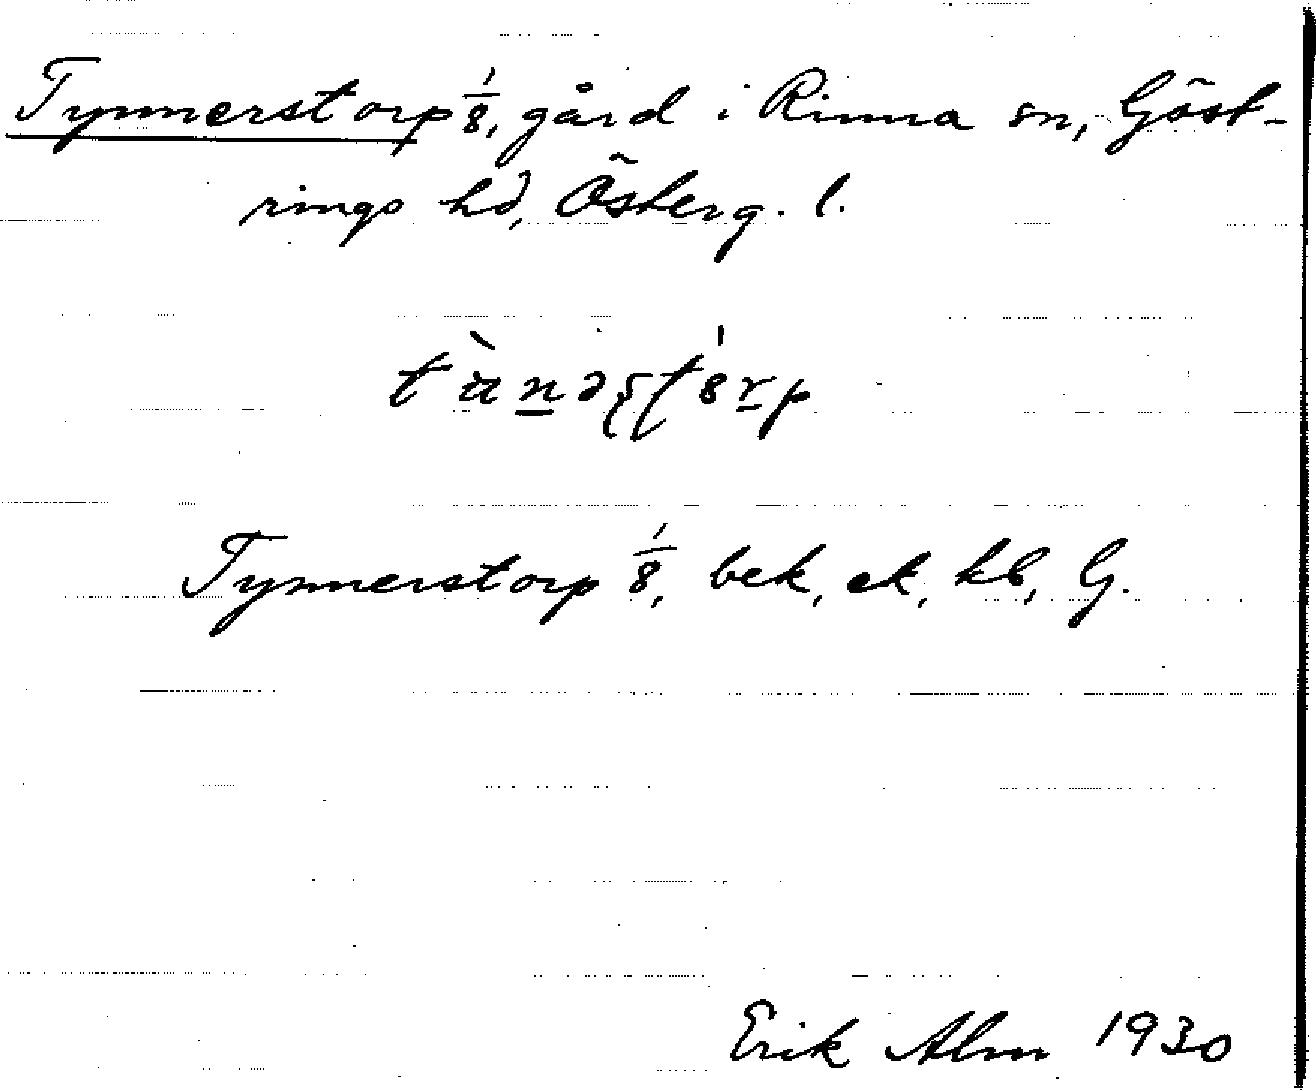 Tynnerstorp 1/8, gård i Rinna sn, Göst-
rings hd, Österg. l.
Tynnerstorp 1/8, bek, ek, kb, G.
Erik Alm 1930